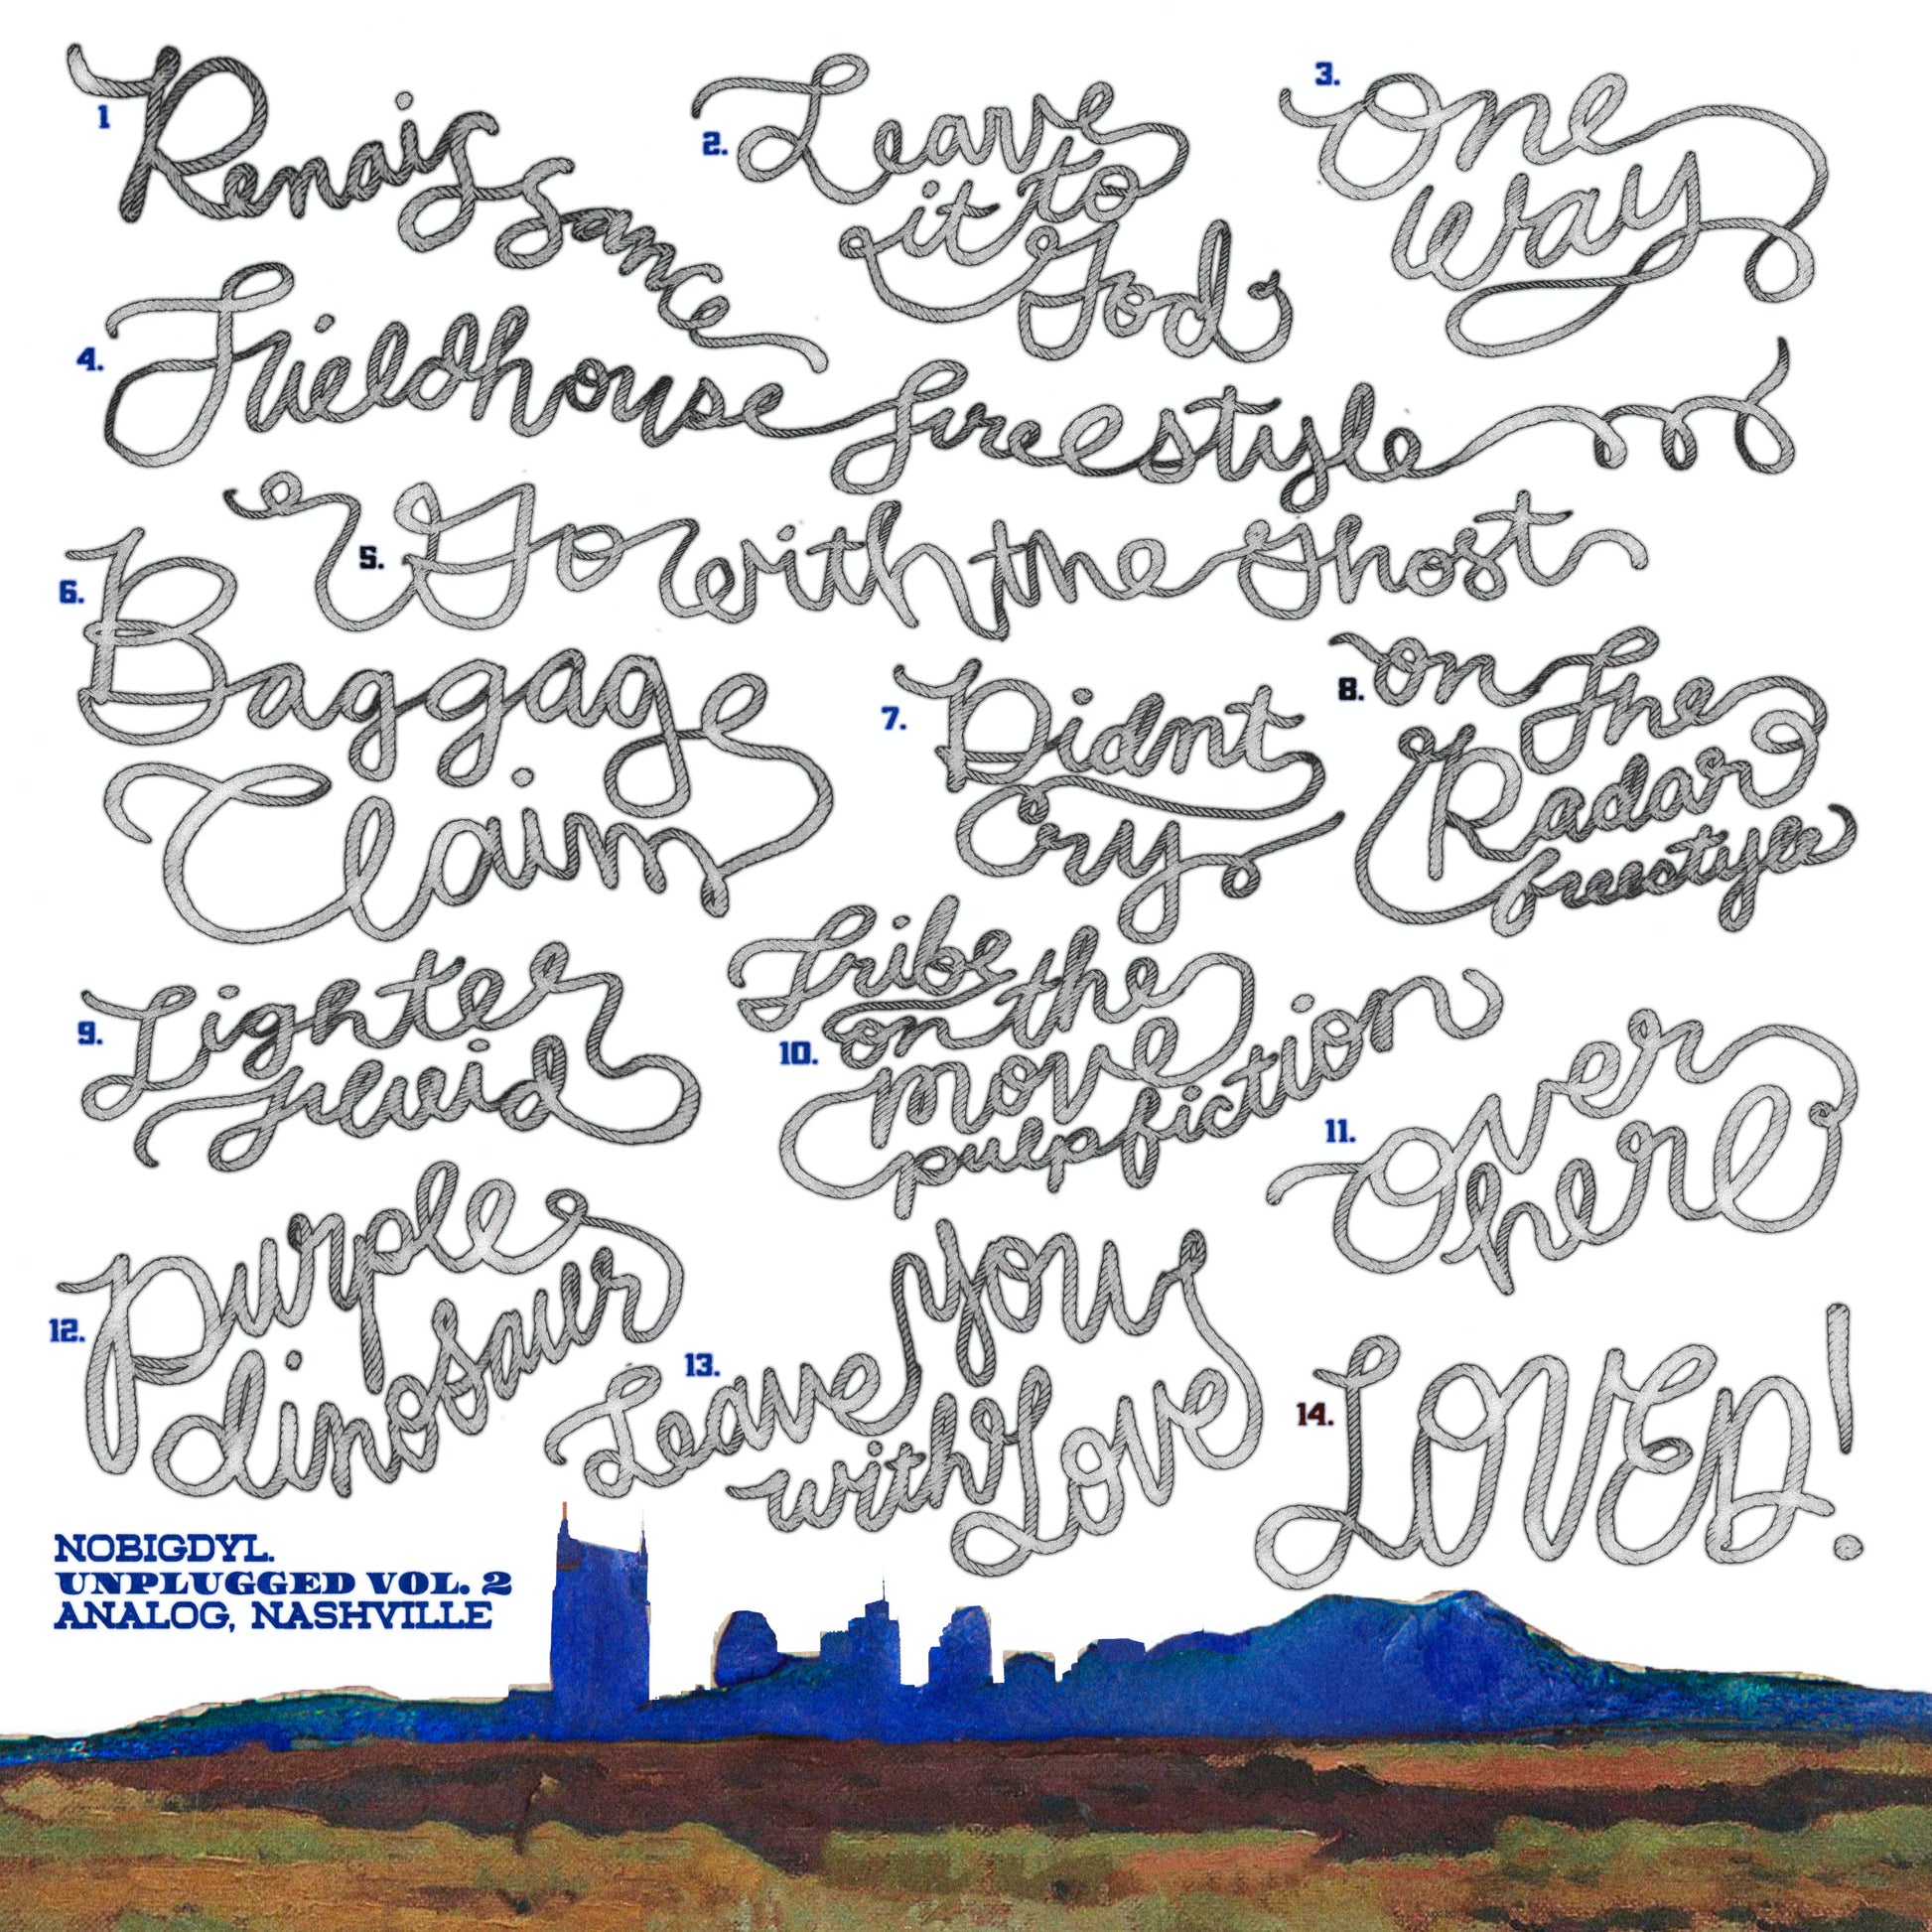 1 Renaissance
2. Leave
it to
God
3. One
way
4. Fieldhouse freestyle
5. Go with the Ghost
6. Baggage
Claim
7. Didnt
Cry
8. on The
Radar
freestyle
9. Lighter
fluid
10. Tribe
on the
move
pulp fiction
11. Over
here
12. Purple
dinosaur
13. Leave you
with Love
14. LOVED!
NOBIGDYL.
UNPLUGGED VOL. 2
ANALOG, NASHVILLE